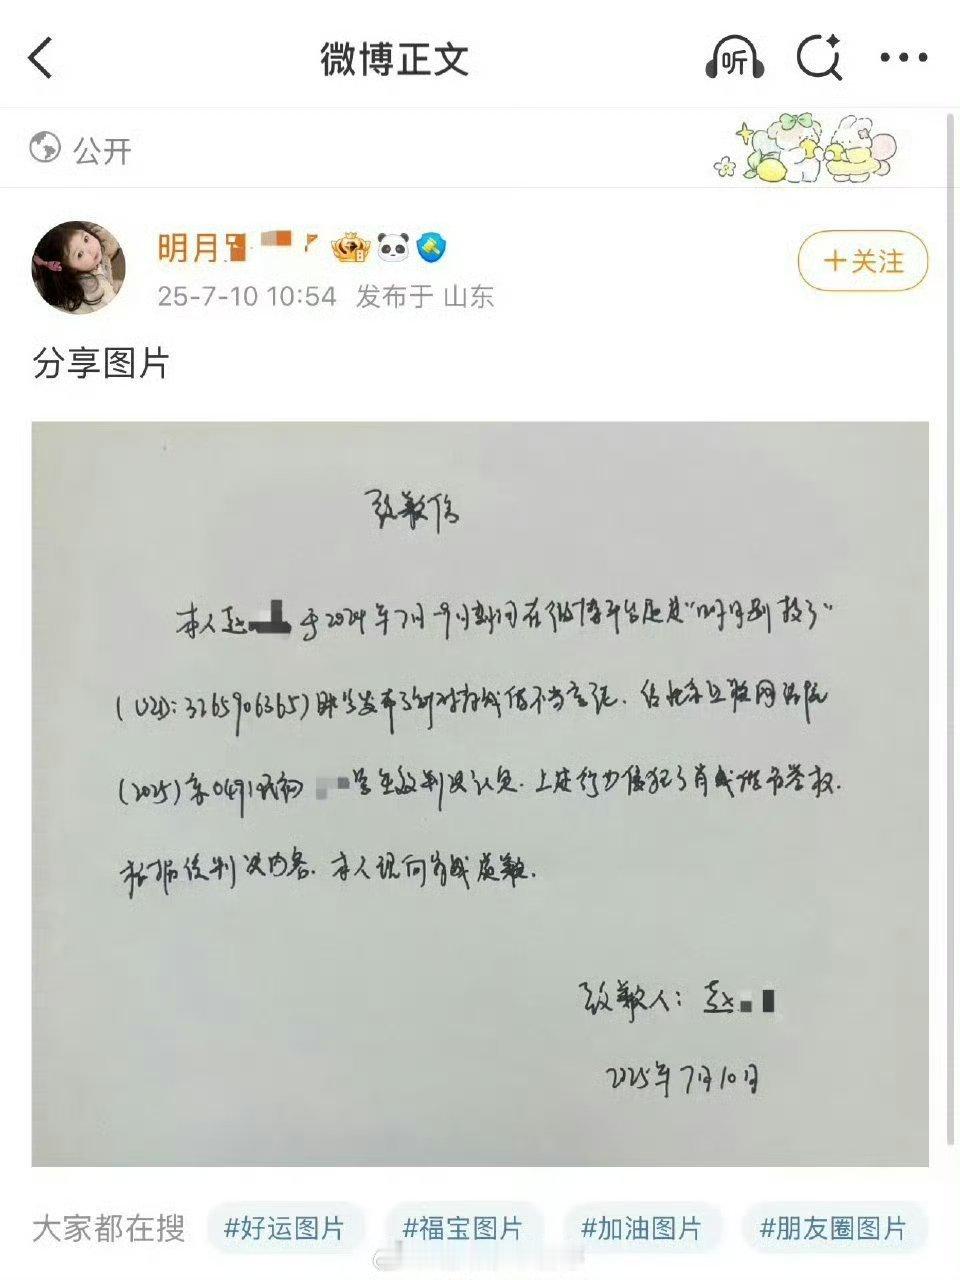 微博正文
听
公开
明月
25-7-10 10:54 发布于 山东
+关注
分享图片
致歉信
本人赵 于2024年7月-9月期间在微博平台通过"明月别授予"
(UID: 3265906365)账号发布了针对肖战的不当言论. 经北京互联网法院
(2025)京0491民初 号生效判决认定. 上述行为侵犯了肖战的名誉权.
根据该判决内容. 本人现向肖战致歉.
致歉人: 赵
2025年7月10日
大家都在搜 #好运图片 #福宝图片 #加油图片 #朋友圈图片